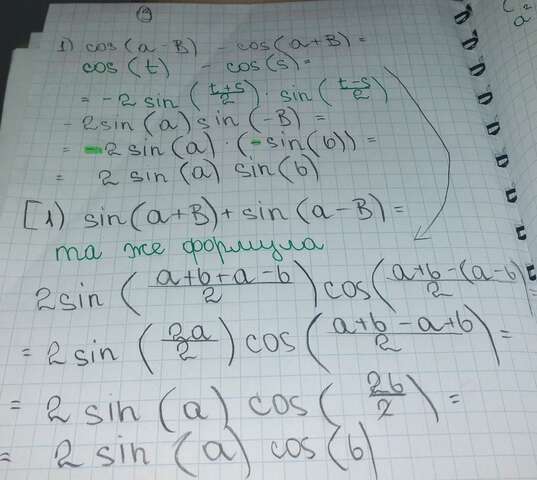 1) cos(a-B) - cos(a+B) =
cos(t) - cos(s) =
= -2 sin (t+s/2) · sin (t-s/2)
-2sin(a) sin(-B) =
= -2 sin(a) · (-sin(b)) =
= 2 sin(a) sin(b)
[1) sin(a+B) + sin(a-B) =
та же формула
2sin (a+b+a-b/2) cos(a+b-(a-b)/2) =
= 2 sin (2a/2) cos (a+b-a+b/2) =
= 2 sin (a) cos (2b/2) =
= 2 sin (a) cos (b)